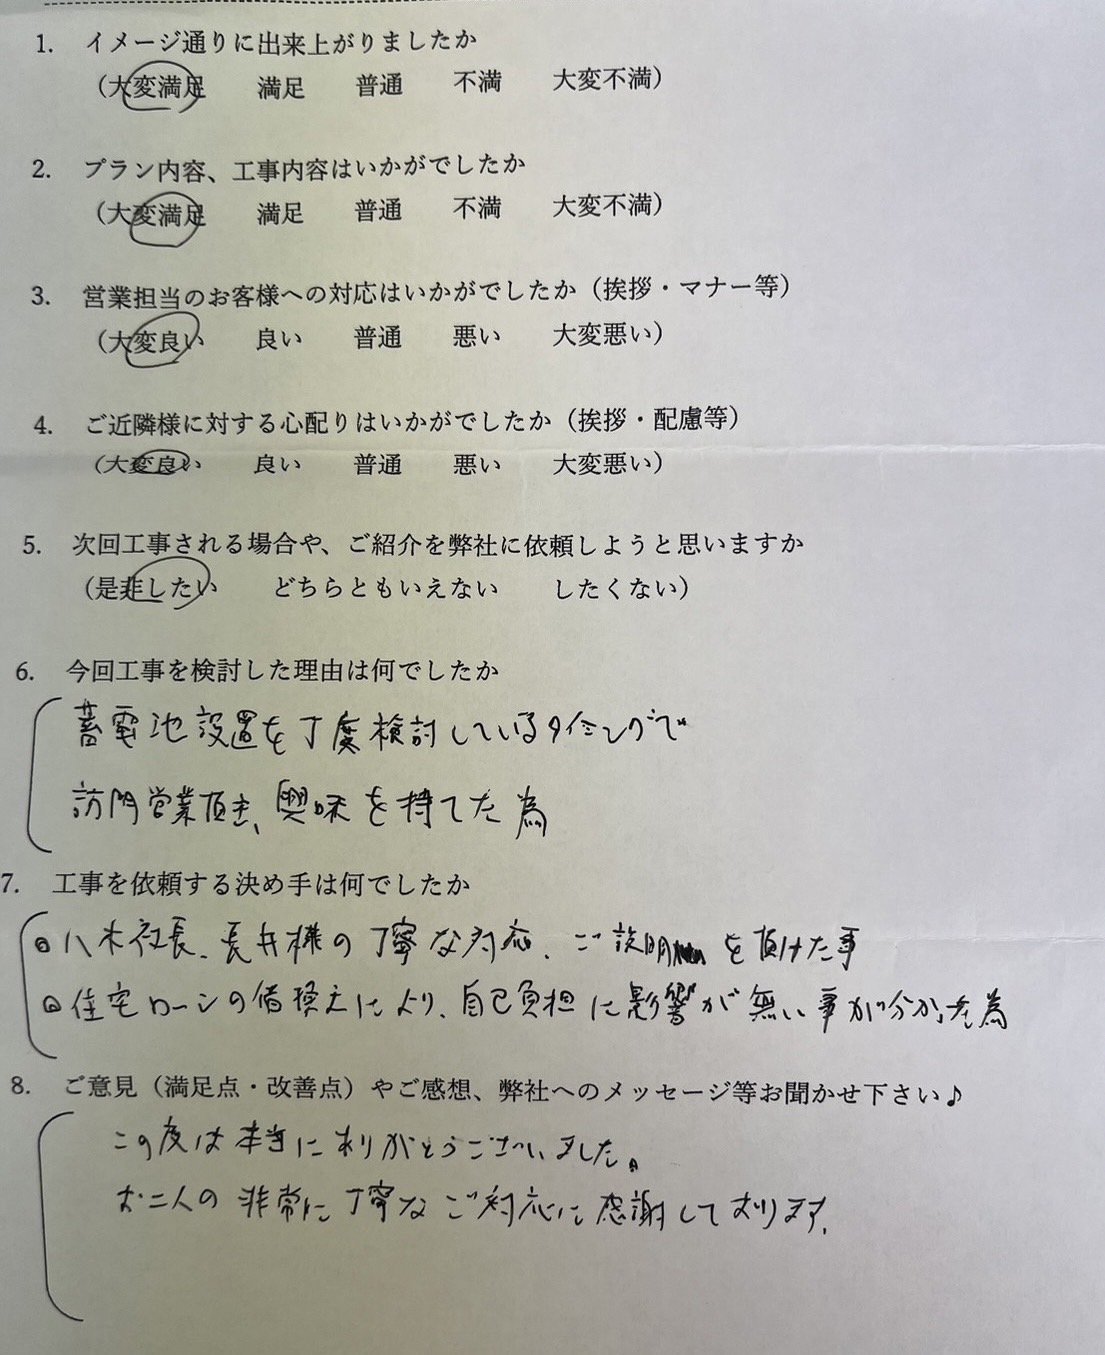 1. イメージ通りに出来上がりましたか
(大変満足 満足 普通 不満 大変不満)
2. プラン内容、工事内容はいかがでしたか
(大変満足 満足 普通 不満 大変不満)
3. 営業担当のお客様への対応はいかがでしたか（挨拶・マナー等）
(大変良い 良い 普通 悪い 大変悪い)
4. ご近隣様に対する心配りはいかがでしたか（挨拶・配慮等）
(大変良い 良い 普通 悪い 大変悪い)
5. 次回工事される場合や、ご紹介を弊社に依頼しようと思いますか
(是非したい どちらともいえない したくない)
6. 今回工事を検討した理由は何でしたか
蓄電池設置を丁度検討しているタイミングで
訪問営業頂き、興味を持てた為
7. 工事を依頼する決め手は何でしたか
◎八木社長、長井様の丁寧な対応、ご説明を頂けた事
◎住宅ローンの借換えにより、自己負担に影響が無い事が分かった為
8. ご意見（満足点・改善点）やご感想、弊社へのメッセージ等お聞かせ下さい♪
この度は本当にありがとうございました。
お二人の非常に丁寧なご対応に感謝しております。